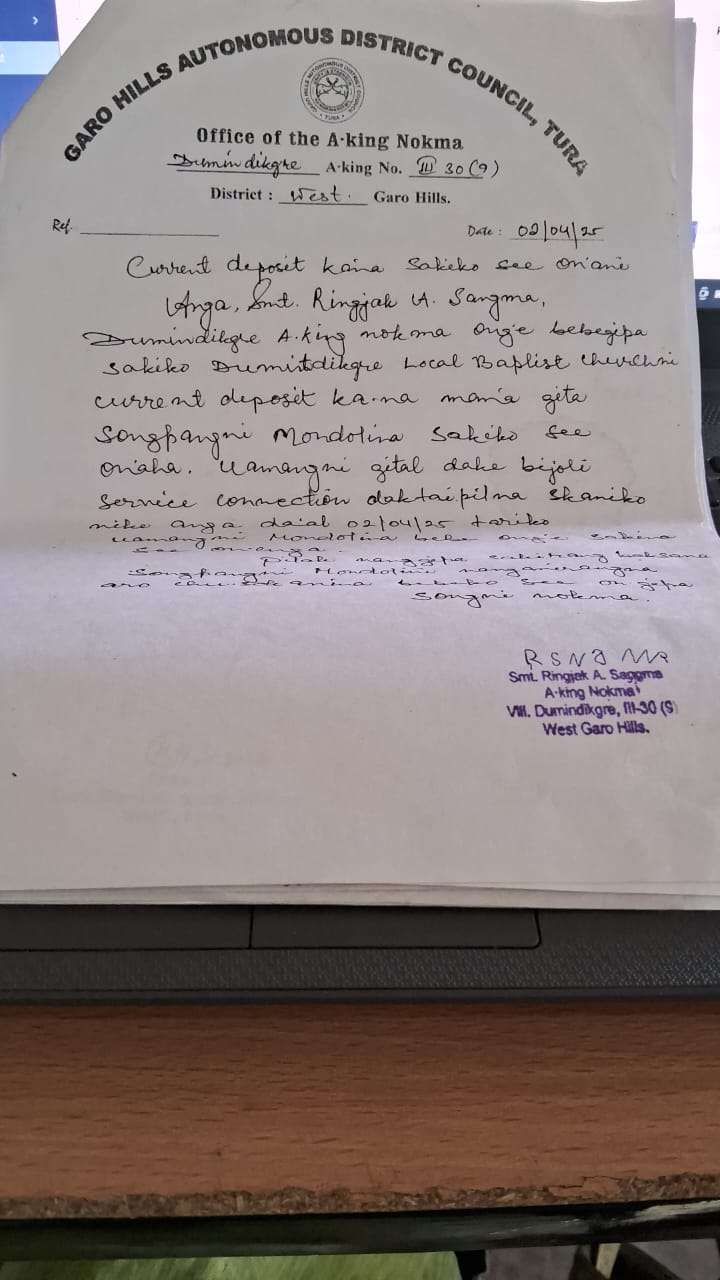 GARO HILLS AUTONOMOUS DISTRICT COUNCIL, TURA
Office of the A·king Nokma
Dumindikgre A·king No. III 30 (9)
District : West. Garo Hills.
Ref.
Date : 02/04/25
Current deposit kana sakiko see on'ani
Anga, Smt. Ringjak A. Sangma,
Dumindikgre A.king nokma ong'e bebegipa
sakiko Dumindikgre Local Baptist Churchni
current deposit ka·na mania gita
Songpangni Mondolina sakiko see
on'aha. Uamangni gital dake bijoli
service connection daktaipilna skaniko
nike anga da'al 02/04/25 tariko
uamangni Mondolina bebe ong'e sakina
see on'enga.
Songpangni Mondolini
aro see on'gipa
Songni nokma.
Smt. Ringjak A. Sangma
A·king Nokma
Vill. Dumindikgre, III-30 (9)
West Garo Hills.